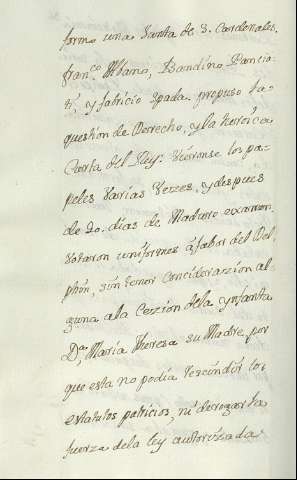 formo una Junta de 3. Cardenales.
fran.co Albano, Bandino Pancia-
ti, y fabricio Spada. propuso la
question de Derecho, y la heroica
Carta del Rey: Vieronse los pa-
peles varias vezes, y despues
de 20. dias de Maduro examen.
Votaron uniformes à fabor del Del-
phin, sin tener Concideracion al-
guna a la Cezion dela ynfanta
D.a Maria Theresa su Madre, por
que esta no podia rescindir los
estatutos patricios, ni derogar la
fuerza dela ley authorizada